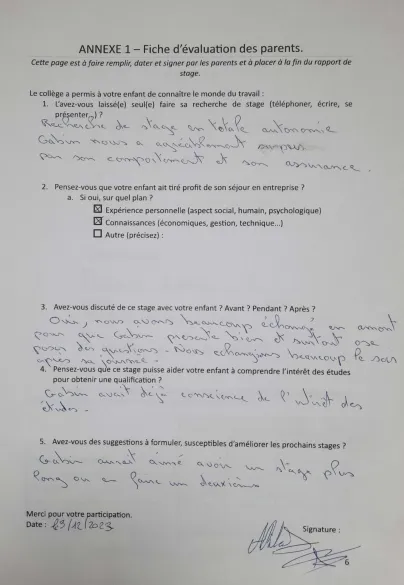 ANNEXE 1 – Fiche d'évaluation des parents.
Cette page est à faire remplir, dater et signer par les parents et à placer à la fin du rapport de
stage.
Le collège a permis à votre enfant de connaître le monde du travail :
1. L'avez-vous laissé(e) seul(e) faire sa recherche de stage (téléphoner, écrire, se
présenter...) ?
Recherche de stage en totale autonomie
Gabin nous a agréablement surpris
par son comportement et son assurance.
2. Pensez-vous que votre enfant ait tiré profit de son séjour en entreprise ?
a. Si oui, sur quel plan ?
☒ Expérience personnelle (aspect social, humain, psychologique)
☒ Connaissances (économiques, gestion, technique...)
☐ Autre (précisez) :
3. Avez-vous discuté de ce stage avec votre enfant ? Avant ? Pendant ? Après ?
Oui, nous avons beaucoup échangé en amont
pour que Gabin présente bien et surtout ose
poser des questions. Nous echangions beaucoup le soir
après sa journée.
4. Pensez-vous que ce stage puisse aider votre enfant à comprendre l'intérêt des études
pour obtenir une qualification ?
Gabin avait déjà conscience de l'intérêt des
études.
5. Avez-vous des suggestions à formuler, susceptibles d'améliorer les prochains stages ?
Gabin aurait aimé avoir un stage plus
long ou en faire un deuxième
Merci pour votre participation.
Date : 29/12/2023
Signature :
6